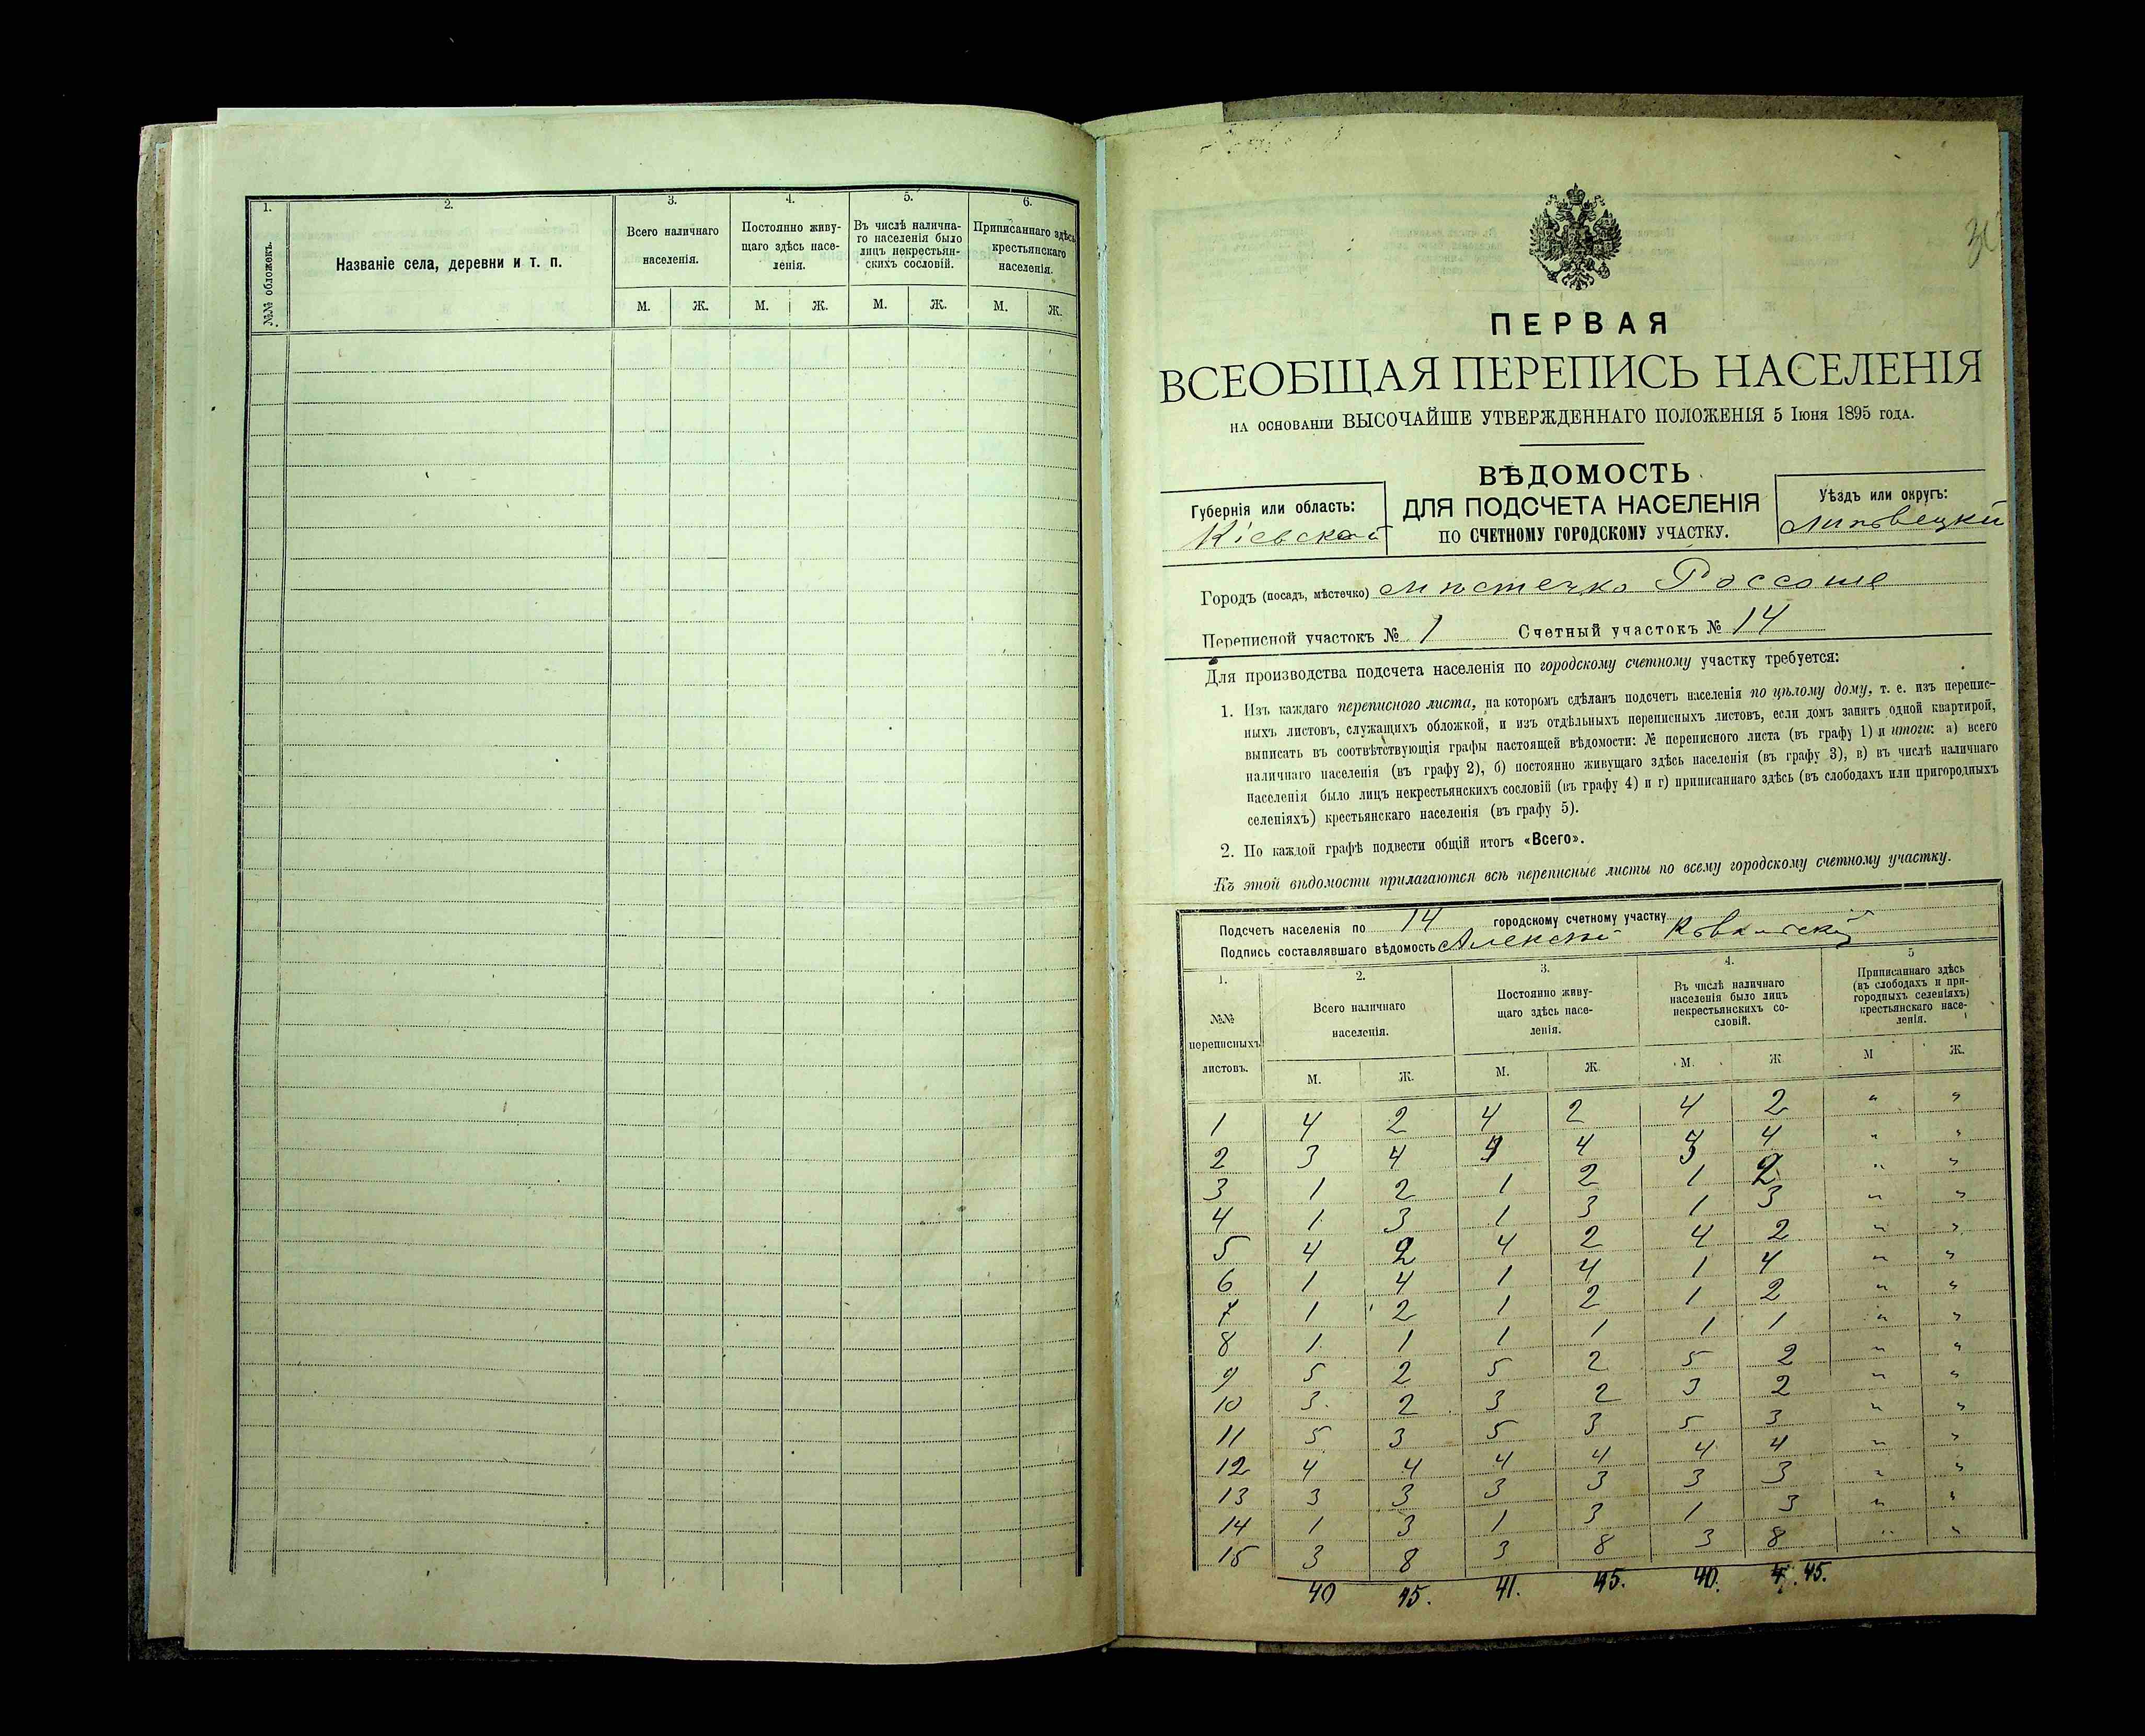 1. 2. 3. 4. 5. 6.
№№ обложекъ.
Названіе села, деревни и т. п.
Всего наличнаго
населенія.
Постоянно живу-
щаго здѣсь насе-
ленія.
Въ числѣ налична-
го населенія было
лицъ некрестьян-
скихъ сословій.
Приписаннаго здѣсь
крестьянскаго
населенія.
М. Ж. М. Ж. М. Ж. М. Ж.
ПЕРВАЯ
ВСЕОБЩАЯ ПЕРЕПИСЬ НАСЕЛЕНІЯ
НА ОСНОВАНІИ ВЫСОЧАЙШЕ УТВЕРЖДЕННАГО ПОЛОЖЕНІЯ 5 Іюня 1895 ГОДА.
ВѢДОМОСТЬ
ДЛЯ ПОДСЧЕТА НАСЕЛЕНІЯ
ПО СЧЕТНОМУ ГОРОДСКОМУ УЧАСТКУ.
Губернія или область:
Кіевской
Уѣздъ или округъ:
Липовецкий
Городъ (посадъ, мѣстечко) мѣстечко Россоше
Переписной участокъ № 1 Счетный участокъ № 14
Для производства подсчета населенія по городскому счетному участку требуется:
1. Изъ каждаго переписного листа, на которомъ сдѣланъ подсчетъ населенія по цѣлому дому, т. е. изъ перепис-
ныхъ листовъ, служащихъ обложкой, и изъ отдѣльныхъ переписныхъ листовъ, если домъ занятъ одной квартирой,
выписать въ соотвѣтствующія графы настоящей вѣдомости: № переписного листа (въ графу 1) и итоги: а) всего
наличнаго населенія (въ графу 2), б) постоянно живущаго здѣсь населенія (въ графу 3), в) въ числѣ наличнаго
населенія было лицъ некрестьянскихъ сословій (въ графу 4) и г) приписаннаго здѣсь (въ слободахъ или пригородныхъ
селеніяхъ) крестьянскаго населенія (въ графу 5).
2. По каждой графѣ подвести общій итогъ «Всего».
Къ этой вѣдомости прилагаются всѣ переписные листы по всему городскому счетному участку.
Подсчетъ населенія по 14 городскому счетному участку
Подпись составлявшаго вѣдомость Алексѣй
1. 2. 3. 4. 5
№№
переписныхъ
листовъ.
Всего наличнаго
населенія.
Постоянно живу-
щаго здѣсь насе-
ленія.
Въ числѣ наличнаго
населенія было лицъ
некрестьянскихъ со-
словій.
Приписаннаго здѣсь
(въ слободахъ и при-
городныхъ селеніяхъ)
крестьянскаго насе-
ленія.
М. Ж. М. Ж. М. Ж М Ж.
1 4 2 4 2 4 2 " "
2 3 4 4 4 3 4 " "
3 1 2 1 2 1 2 " "
4 1 3 1 3 1 3 " "
5 4 2 4 2 4 2 " "
6 1 4 1 4 1 4 " "
7 1 2 1 2 1 2 " "
8 1 1 1 1 1 1 " "
9 5 2 5 2 5 2 " "
10 3 2 3 2 3 2 " "
11 5 3 5 3 5 3 " "
12 4 4 4 4 4 4 " "
13 3 3 3 3 3 3 " "
14 1 3 1 3 1 3 " "
15 3 8 3 8 3 8 " "
40 45. 41. 45. 40. 45.